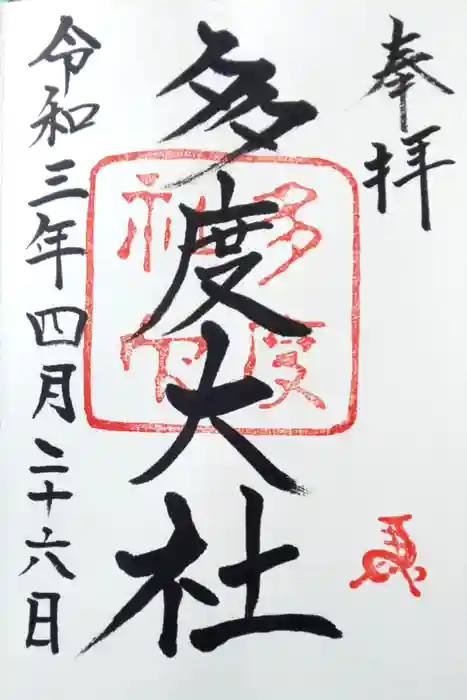 奉拝
多度大社
多度
神宮
令和三年四月二十六日